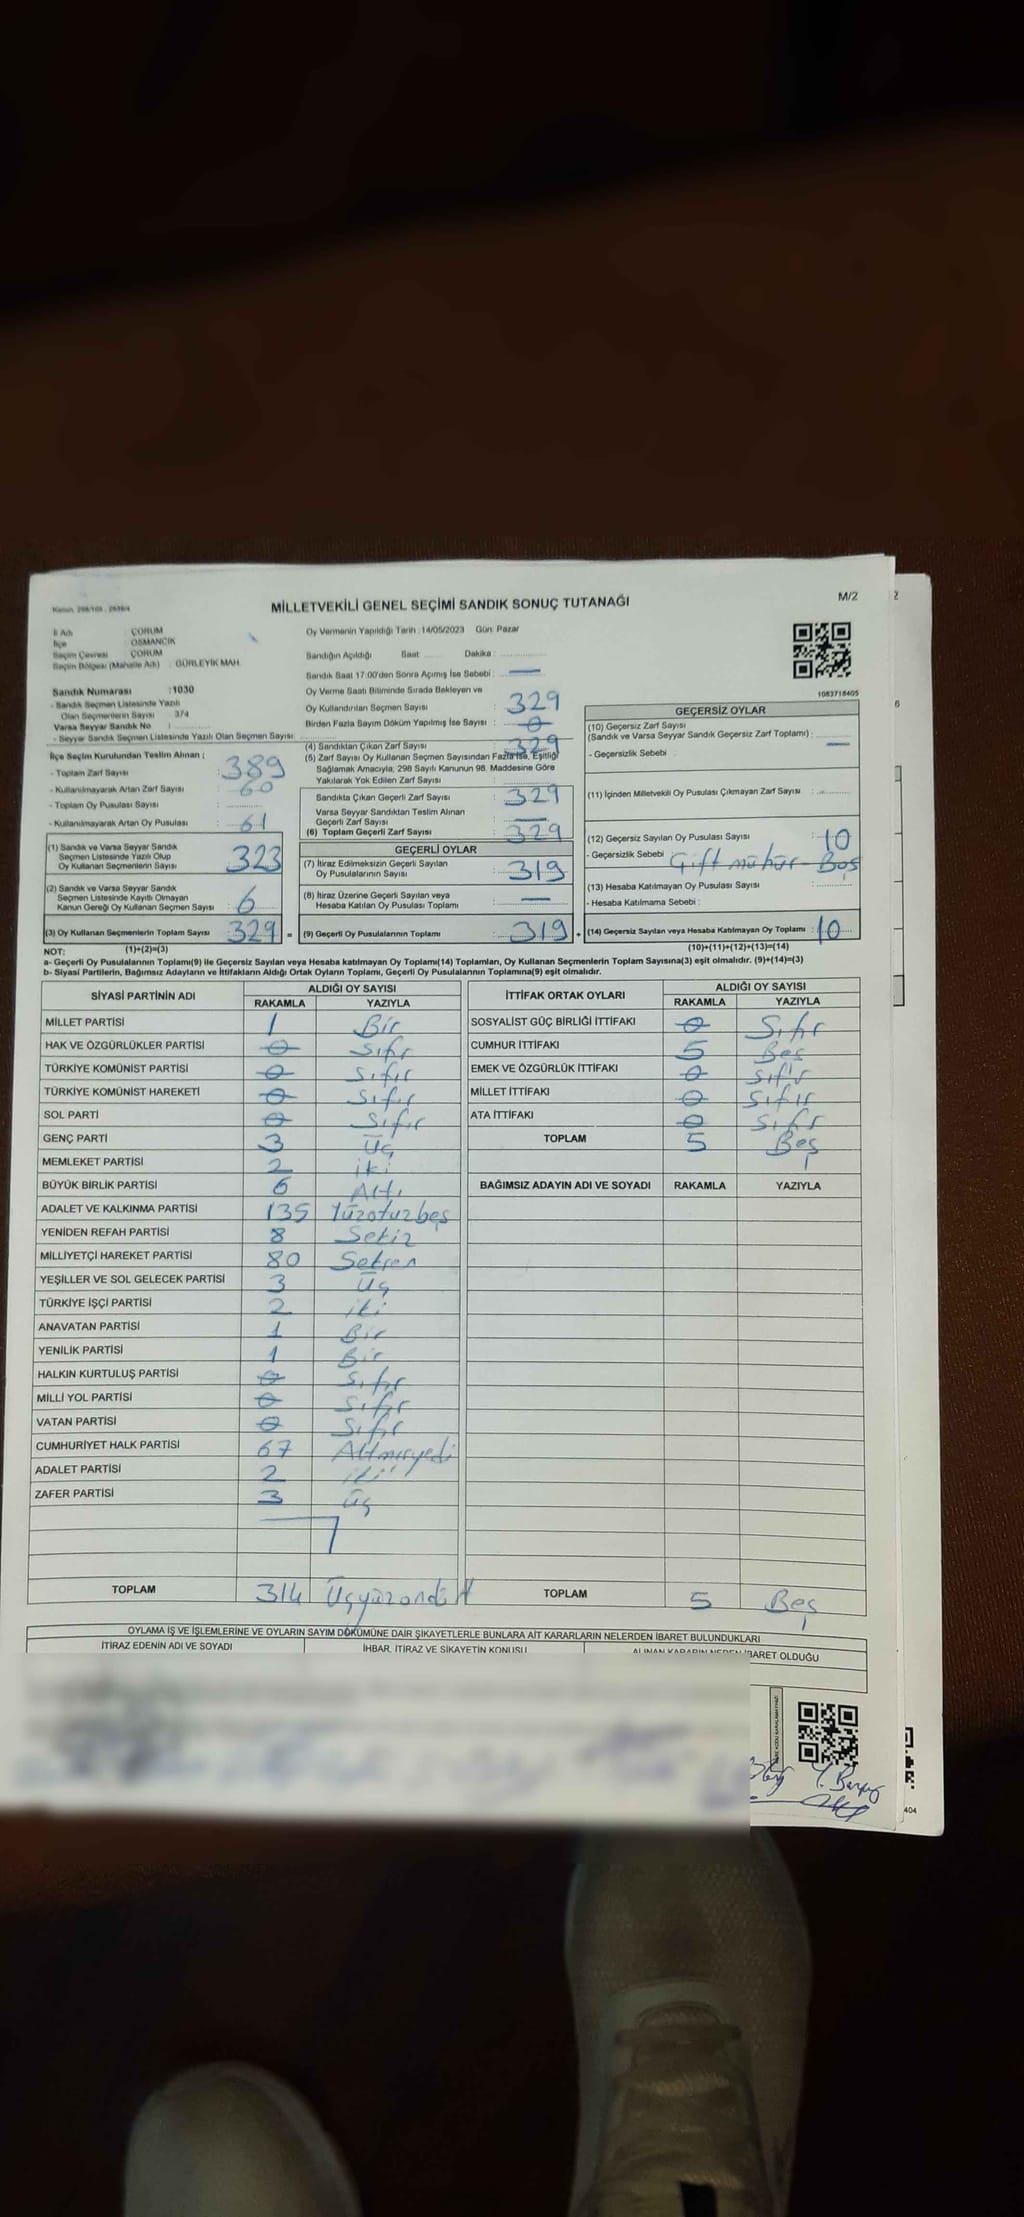 Kanun: 298/105 - 2839/4
MİLLETVEKİLİ GENEL SEÇİMİ SANDIK SONUÇ TUTANAĞI
M/2
İl Adı : ÇORUM
İlçe : OSMANCIK
Seçim Çevresi : ÇORUM
Seçim Bölgesi (Mahalle Adı) : GÜRLEYİK MAH.
Sandık Numarası :1030
- Sandık Seçmen Listesinde Yazılı
Olan Seçmenlerin Sayısı : 374
Varsa Seyyar Sandık No :
- Seyyar Sandık Seçmen Listesinde Yazılı Olan Seçmen Sayısı :
Oy Vermenin Yapıldığı Tarih : 14/05/2023 Gün: Pazar
Sandığın Açıldığı Saat : Dakika :
Sandık Saat 17.00'den Sonra Açımış İse Sebebi : —
Oy Verme Saati Bitiminde Sırada Bekleyen ve
Oy Kullandırılan Seçmen Sayısı : 329
Birden Fazla Sayım Döküm Yapılmış İse Sayısı : 0
1083718405
İlçe Seçim Kurulundan Teslim Alınan ;
- Toplam Zarf Sayısı : 389
- Kullanılmayarak Artan Zarf Sayısı : 60
- Toplam Oy Pusulası Sayısı :
- Kullanılmayarak Artan Oy Pusulası : 61
(1) Sandık ve Varsa Seyyar Sandık
Seçmen Listesinde Yazılı Olup
Oy Kullanan Seçmenlerin Sayısı : 323
(2) Sandık ve Varsa Seyyar Sandık
Seçmen Listesinde Kayıtlı Olmayan
Kanun Gereği Oy Kullanan Seçmen Sayısı : 6
(3) Oy Kullanan Seçmenlerin Toplam Sayısı : 329 =
(4) Sandıktan Çıkan Zarf Sayısı : 329
(5) Zarf Sayısı Oy Kullanan Seçmen Sayısından Fazla İse, Eşitliği
Sağlamak Amacıyla, 298 Sayılı Kanunun 98. Maddesine Göre
Yakılarak Yok Edilen Zarf Sayısı :
Sandıkta Çıkan Geçerli Zarf Sayısı : 329
Varsa Seyyar Sandıktan Teslim Alınan
Geçerli Zarf Sayısı : —
(6) Toplam Geçerli Zarf Sayısı : 329
GEÇERLİ OYLAR
(7) İtiraz Edilmeksizin Geçerli Sayılan
Oy Pusulalarının Sayısı : 319
(8) İtiraz Üzerine Geçerli Sayılan veya
Hesaba Katılan Oy Pusulası Toplamı : —
(9) Geçerli Oy Pusulalarının Toplamı : 319 +
GEÇERSİZ OYLAR
(10) Geçersiz Zarf Sayısı
(Sandık ve Varsa Seyyar Sandık Geçersiz Zarf Toplamı) :
- Geçersizlik Sebebi : —
(11) İçinden Milletvekili Oy Pusulası Çıkmayan Zarf Sayısı :
(12) Geçersiz Sayılan Oy Pusulası Sayısı : 10
- Geçersizlik Sebebi : Çift mühür - Boş
(13) Hesaba Katılmayan Oy Pusulası Sayısı :
- Hesaba Katılmama Sebebi :
(14) Geçersiz Sayılan veya Hesaba Katılmayan Oy Toplamı : 10
NOT: (1)+(2)=(3) (10)+(11)+(12)+(13)=(14)
a- Geçerli Oy Pusulalarının Toplamı(9) ile Geçersiz Sayılan veya Hesaba katılmayan Oy Toplamı(14) Toplamları, Oy Kullanan Seçmenlerin Toplam Sayısına(3) eşit olmalıdır. (9)+(14)=(3)
b- Siyasi Partilerin, Bağımsız Adayların ve İttifakların Aldığı Ortak Oyların Toplamı, Geçerli Oy Pusulalarının Toplamına(9) eşit olmalıdır.
SİYASİ PARTİNİN ADI ALDIĞI OY SAYISI
RAKAMLA YAZIYLA
MİLLET PARTİSİ 1 Bir
HAK VE ÖZGÜRLÜKLER PARTİSİ 0 Sıfır
TÜRKİYE KOMÜNİST PARTİSİ 0 Sıfır
TÜRKİYE KOMÜNİST HAREKETİ 0 Sıfır
SOL PARTİ 0 Sıfır
GENÇ PARTİ 3 Üç
MEMLEKET PARTİSİ 2 iki
BÜYÜK BİRLİK PARTİSİ 6 Altı
ADALET VE KALKINMA PARTİSİ 135 Yüzotuzbeş
YENİDEN REFAH PARTİSİ 8 Sekiz
MİLLİYETÇİ HAREKET PARTİSİ 80 Seksen
YEŞİLLER VE SOL GELECEK PARTİSİ 3 Üç
TÜRKİYE İŞÇİ PARTİSİ 2 iki
ANAVATAN PARTİSİ 1 Bir
YENİLİK PARTİSİ 1 Bir
HALKIN KURTULUŞ PARTİSİ 0 Sıfır
MİLLİ YOL PARTİSİ 0 Sıfır
VATAN PARTİSİ 0 Sıfır
CUMHURİYET HALK PARTİSİ 67 Altmışyedi
ADALET PARTİSİ 2 iki
ZAFER PARTİSİ 3 Üç
TOPLAM 314 Üçyüzondört
İTTİFAK ORTAK OYLARI ALDIĞI OY SAYISI
RAKAMLA YAZIYLA
SOSYALİST GÜÇ BİRLİĞİ İTTİFAKI 0 Sıfır
CUMHUR İTTİFAKI 5 Beş
EMEK VE ÖZGÜRLÜK İTTİFAKI 0 Sıfır
MİLLET İTTİFAKI 0 Sıfır
ATA İTTİFAKI 0 Sıfır
TOPLAM 5 Beş
BAĞIMSIZ ADAYIN ADI VE SOYADI RAKAMLA YAZIYLA
TOPLAM 5 Beş
OYLAMA İŞ VE İŞLEMLERİNE VE OYLARIN SAYIM DÖKÜMÜNE DAİR ŞİKAYETLERLE BUNLARA AİT KARARLARIN NELERDEN İBARET BULUNDUKLARI
İTİRAZ EDENİN ADI VE SOYADI İHBAR, İTİRAZ VE ŞİKAYETİN KONUSU ALINAN KARARIN NEDEN İBARET OLDUĞU
404